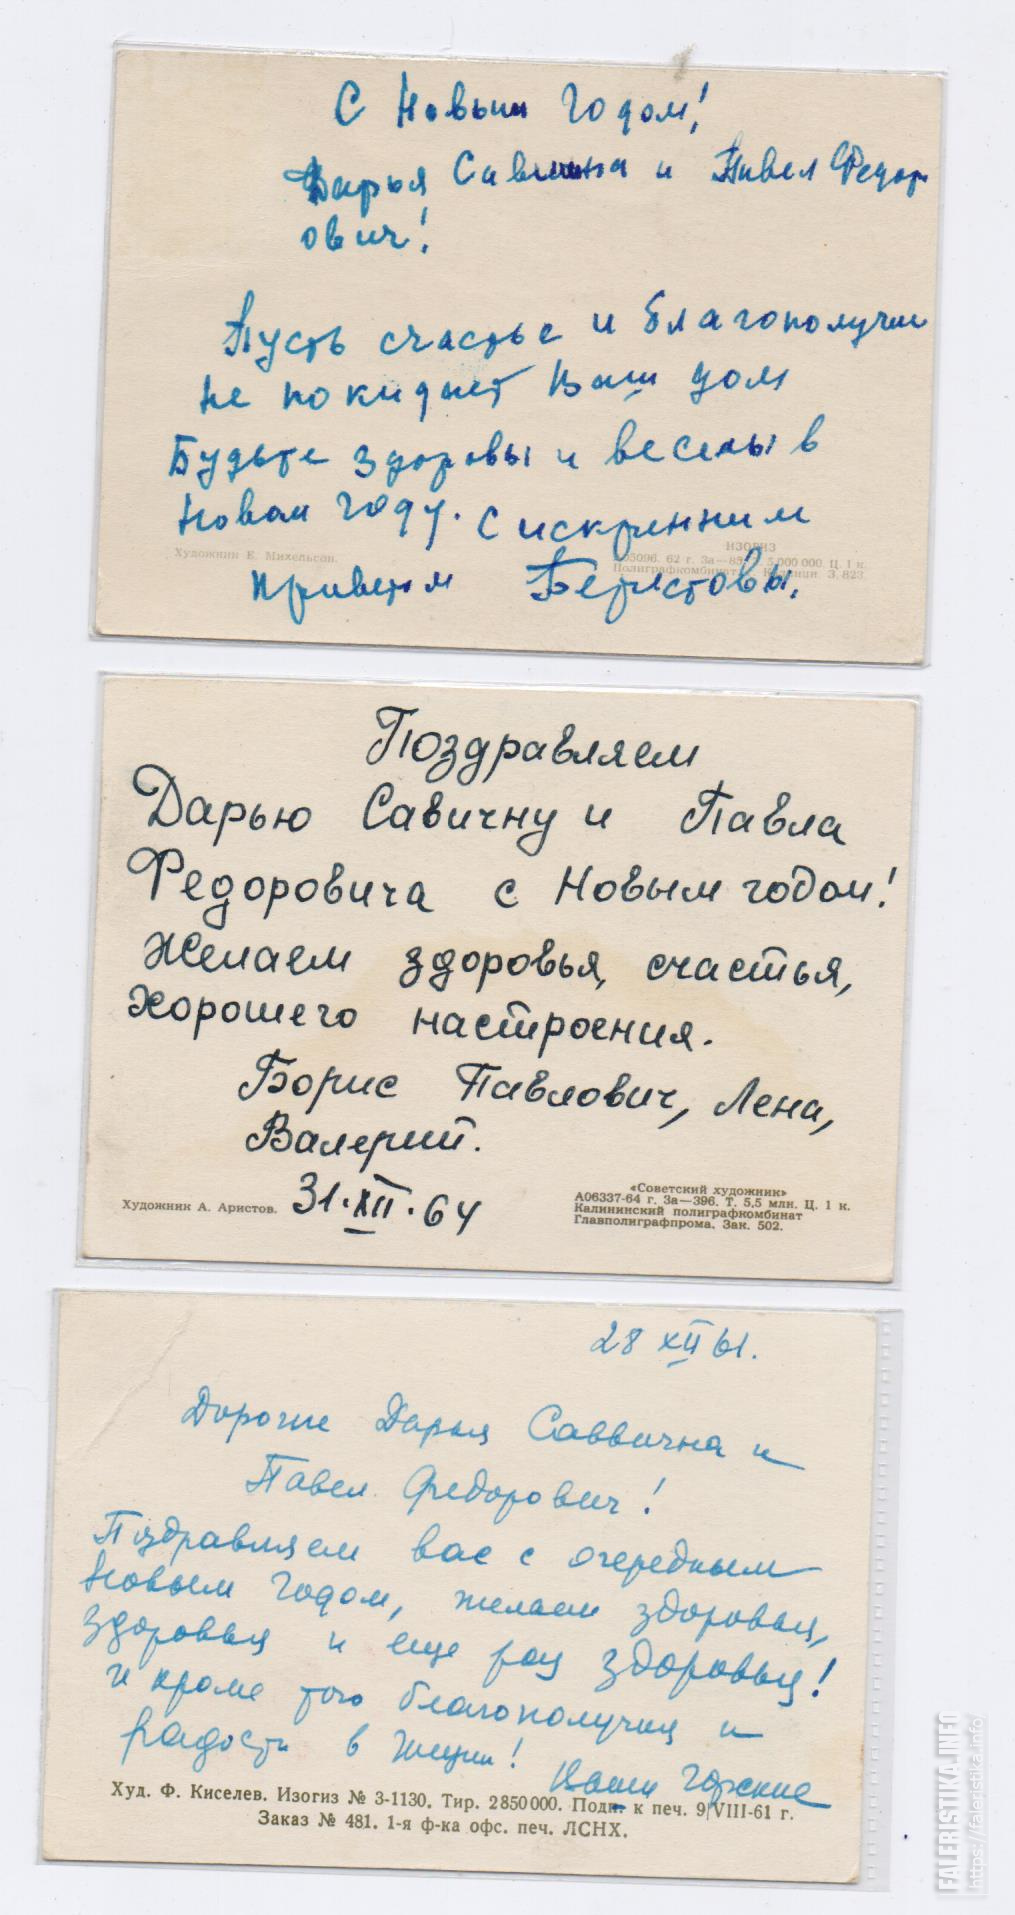 С Новым Годом!
Дарья Савишна и Павел Федор
ович!
Пусть счастье и благополучие
не покидает Ваш дом
Будьте здоровы и веселы в
Новом году. С искренним
приветом Берестовы.
Художник Е. Михельсон.
ИЗОГИЗ
А05096. 62 г. За— 5.000 000. Ц. 1 к.
Полиграфкомбинат З. 823.
Поздравляем
Дарью Савичну и Павла
Федоровича с Новым годом!
Желаем здоровья, счастья,
хорошего настроения.
Борис Павлович, Лена,
Валерий.
31.XII.64
Художник А. Аристов.
«Советский художник»
А06337-64 г. За—396. Т. 5,5 млн. Ц. 1 к.
Калининский полиграфкомбинат
Главполиграфпрома. Зак. 502.
28 XII 61.
Дорогие Дарья Саввична и
Павел Федорович!
Поздравляем вас с очередным
Новым Годом, желаем здоровья,
здоровья и еще раз здоровья!
и кроме того благополучия и
радости в жизни! Ваши Горские
Худ. Ф. Киселев. Изогиз № 3-1130. Тир. 2850000. Подп. к печ. 9/VIII-61 г.
Заказ № 481. 1-я ф-ка офс. печ. ЛСНХ.
FALERISTIKA.INFO
https://faleristika.info/